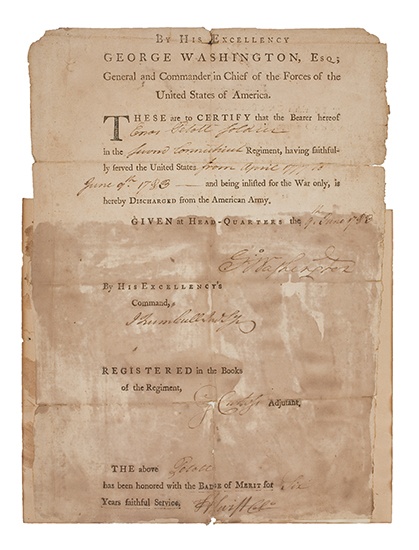 BY HIS EXCELLENCY
GEORGE WASHINGTON, Esq;
General and Commander in Chief of the Forces of the
United States of America.
THESE are to CERTIFY that the Bearer hereof
Soldier
in the Second Connecticut Regiment, having faithful-
ly served the United States from April 1777 to
June 9th. 1783 — and being inlisted for the War only, is
hereby DISCHARGED from the American Army.
GIVEN at HEAD-QUARTERS the 9th June 1783
Go Washington
BY HIS EXCELLENCY'S
Command,
J Trumbull Jun Sy
REGISTERED in the Books
of the Regiment,
Adjutant,
THE above
has been honored with the BADGE of MERIT for Six
Years faithful Service.